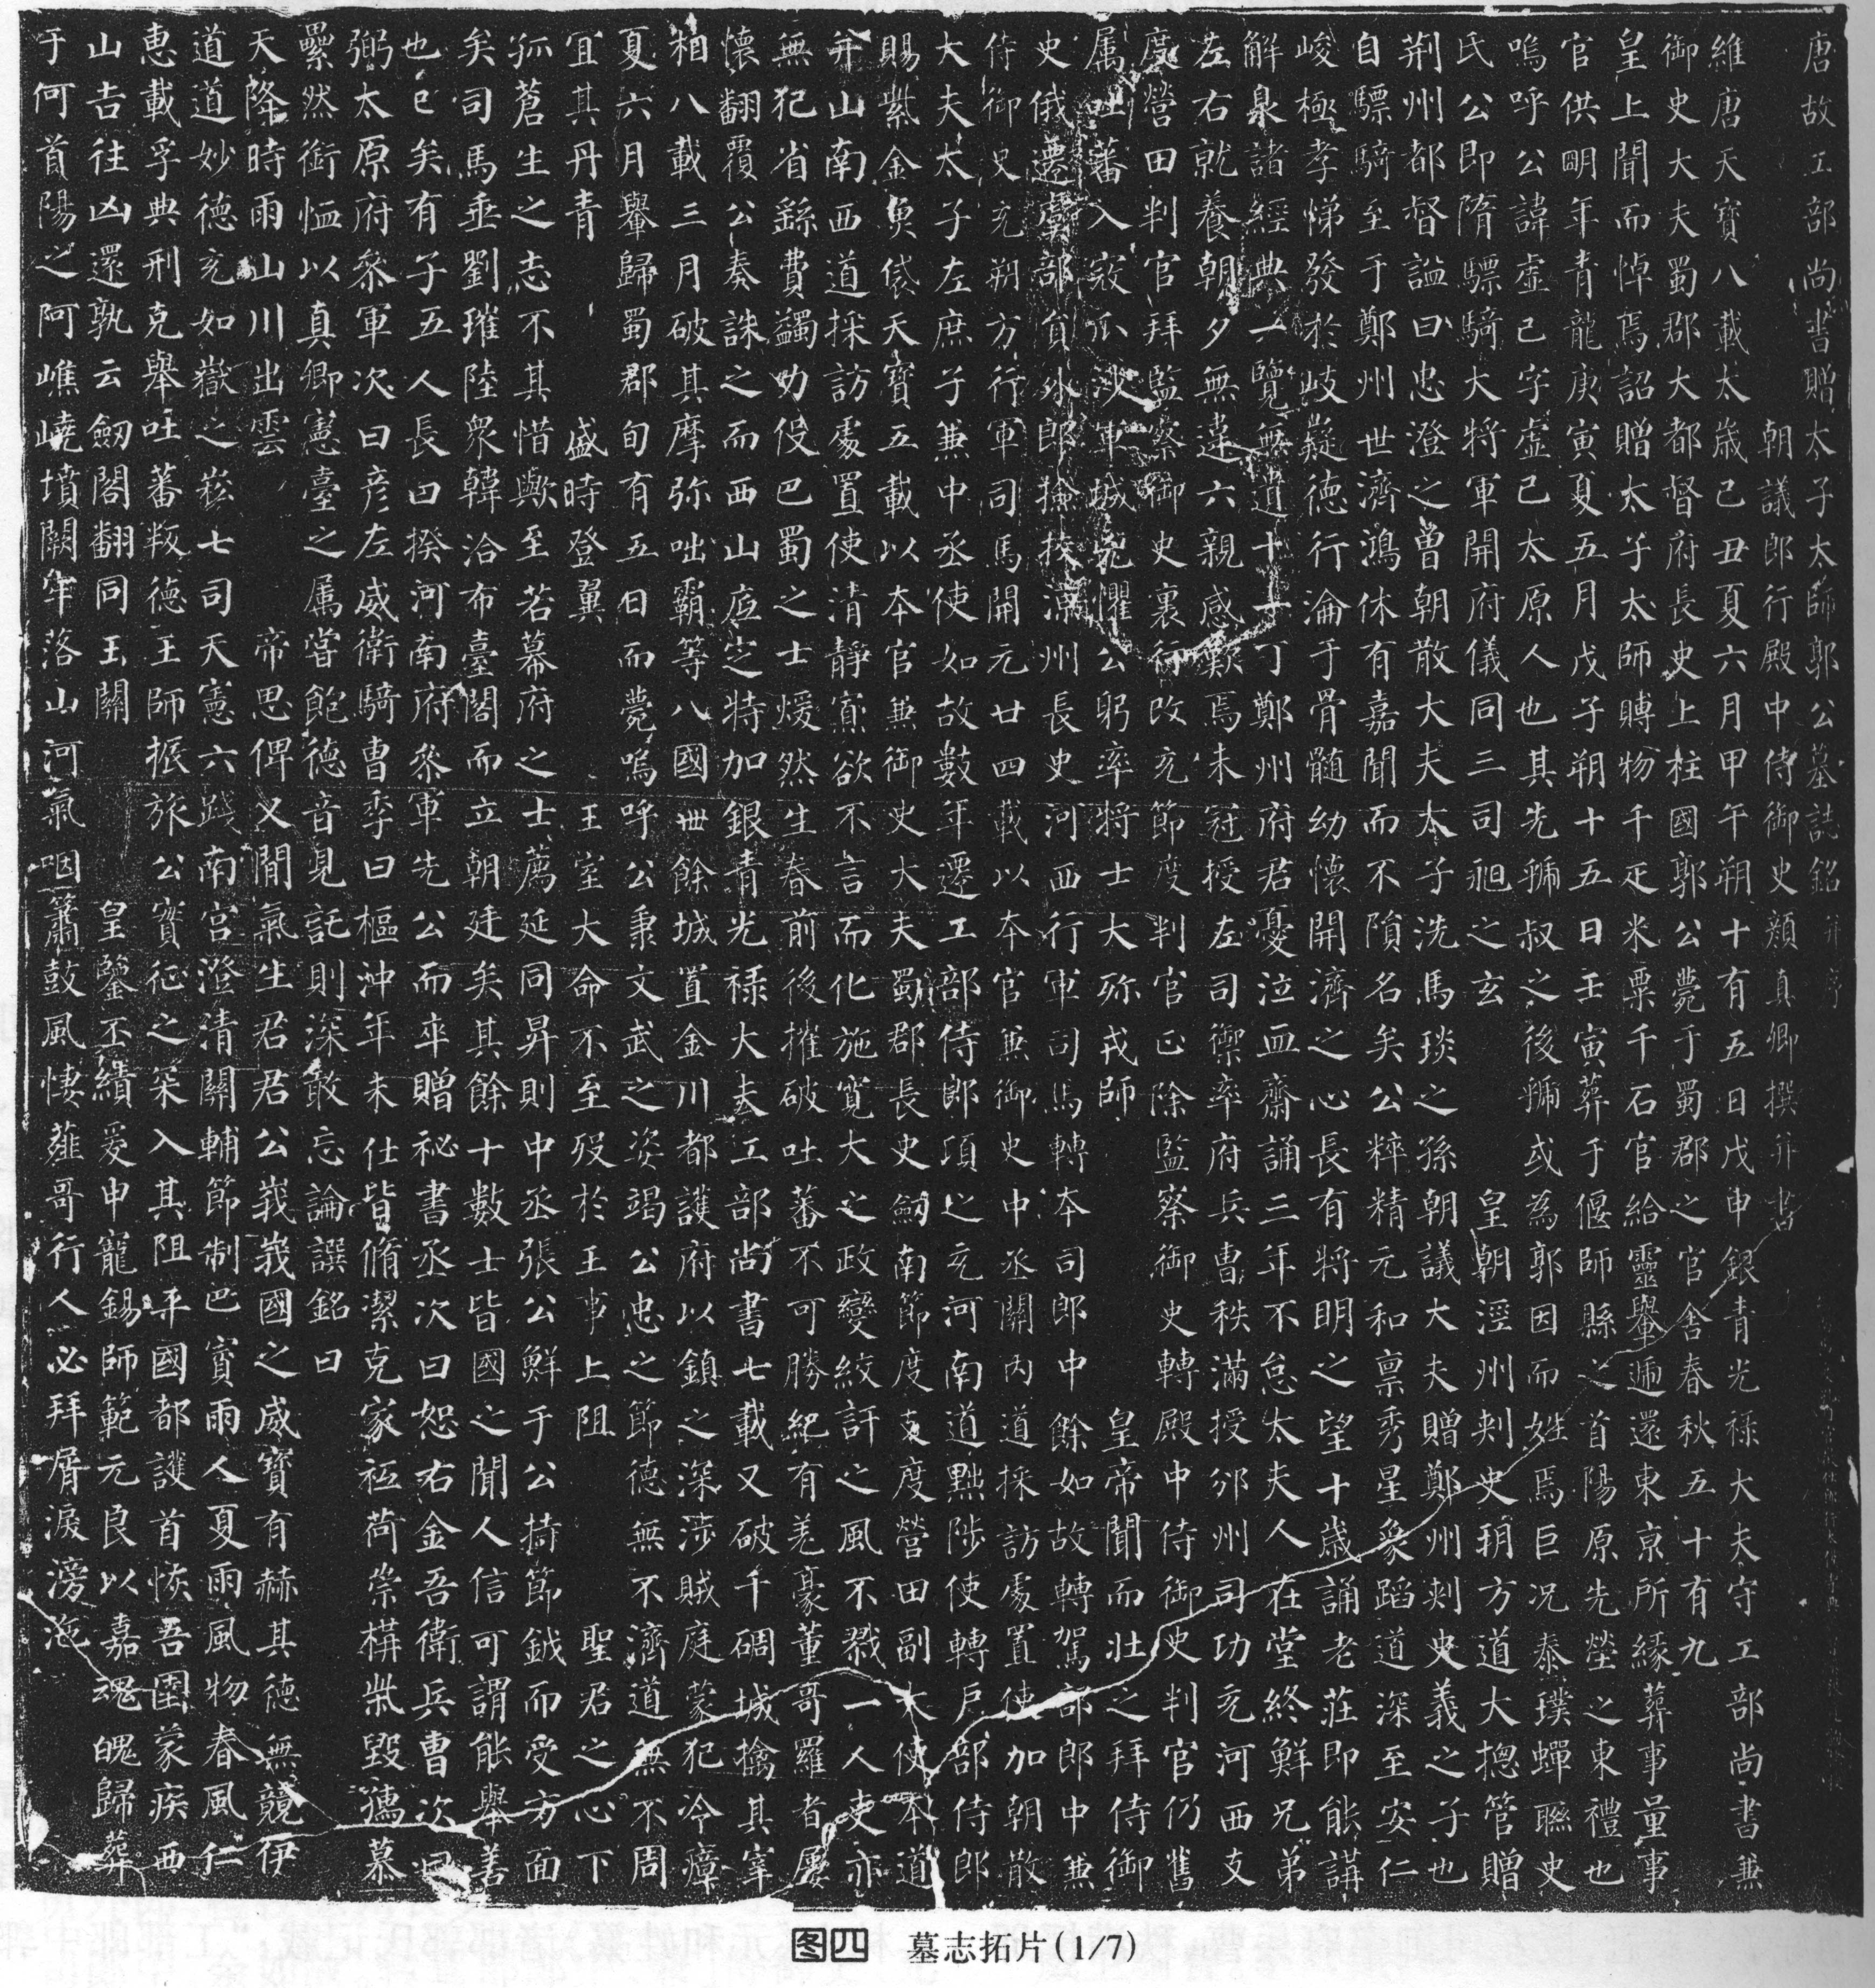 唐故工部尚書贈太子太師郭公墓誌銘并序
朝議郎行殿中侍御史顏真卿撰并書
維唐天寶八載太歲己丑夏六月甲午朔十有五日戊申銀青光祿大夫守工部尚書兼
御史大夫蜀郡大都督府長史上柱國郭公薨于蜀郡之官舍春秋五十有九
皇上聞而悼焉詔贈太子太師賻物千疋米粟千石官給靈轝遞還東京所緣葬事量事
官供明年青龍庚寅夏五月戊子朔十五日壬寅葬于偃師縣之首陽原先塋之東禮也
嗚呼公諱虛己字虛己太原人也其先虢叔之後虢或為郭因而姓焉巨況泰璞蟬聯史
氏公即隋驃騎大將軍開府儀同三司昶之玄　　皇朝涇州刺史朔方道大摠管贈
荊州都督謚曰忠澄之曾朝散大夫太子洗馬琰之孫朝議大夫贈鄭州刺史義之子也
自驃騎至于鄭州世濟鴻休有嘉聞而不隕名矣公粹精元和稟秀星象蹈道深至安仁
峻極孝悌發於岐嶷德行淪于骨髓幼懷開濟之心長有將明之望十歲誦老莊即能講
解泉諸經典一覽無遺十一丁鄭州府君憂泣血齋誦三年不怠太夫人在堂終鮮兄弟
左右就養朝夕無違六親感歎焉未冠授左司禦率府兵曹秩滿授邠州司功充河西支
度營田判官拜監察御史裏行改充節度判官正除監察御史轉殿中侍御史判官仍舊
属吐蕃入寇瓜沙軍城兇懼公躬率將士大殄戎師　　皇帝聞而壯之拜侍御
史俄遷虞部員外郎撿挍涼州長史河西行軍司馬轉本司郎中餘如故轉駕部郎中兼
侍御史充朔方行軍司馬開元廿四載以本官兼御史中丞關內道採訪處置使加朝散
大夫太子左庶子兼中丞使如故數年遷工部侍郎頃之充河南道黜陟使轉戶部侍郎
賜紫金魚袋天寶五載以本官兼御史大夫蜀郡長史劒南節度支度營田副大使本道
并山南西道採訪處置使清靜寡欲不言而化施寬大之政變絞訐之風不戮一人吏亦
無犯省繇費蠲力伇巴蜀之士煖然生春前後摧破吐蕃不可勝紀有羌豪董哥羅者屢
懷翻覆公奏誅之而西山底定特加銀青光祿大夫工部尚書七載又破千碉城擒其宰
相八載三月破其摩弥咄霸等八國卌餘城置金川都護府以鎮之深涉賊庭蒙犯冷瘴
夏六月轝歸蜀郡旬有五日而薨嗚呼公秉文武之姿竭公忠之節德無不濟道無不周
宜其丹青　　盛時登翼　　王室大命不至歿於王事上阻　　聖君之心下
孤蒼生之志不其惜歟至若幕府之士薦延同昇則中丞張公鮮于公掎節鉞而受方面
矣司馬垂劉璀陸眾韓洽布臺閣而立朝廷矣其餘十數士皆國之聞人信可謂能舉善
也已矣有子五人長曰揆河南府參軍先公而卒贈祕書丞次曰恕右金吾衛兵曹次曰
弼太原府參軍次曰彥左威衛騎曹季曰樞沖年未仕皆脩潔克家祗荷崇構柴毀孺慕
纍然銜恤以真卿憲臺之属嘗飽德音見託則深敢忘論譔銘曰
天降時雨山川出雲　　帝思俾乂閒氣生君君公峩峩國之威寶有赫其德無競伊
道道妙德充如嶽之崧七司天憲六踐南宮澄清關輔節制巴賨雨人夏雨風物春風仁
惠載孚典刑克舉吐蕃叛德王師振旅公實征之罙入其阻平國都護首恢吾圉蒙疾西
山吉往凶還孰云劒閣翻同玉關　　皇鑒丕績爰申寵錫師範元良以嘉魂魄歸葬
于何首陽之阿嶕嶢墳闕牢落山河氣咽簫鼓風悽薤哥行人必拜屑淚滂沱
图四　墓志拓片(1/7)